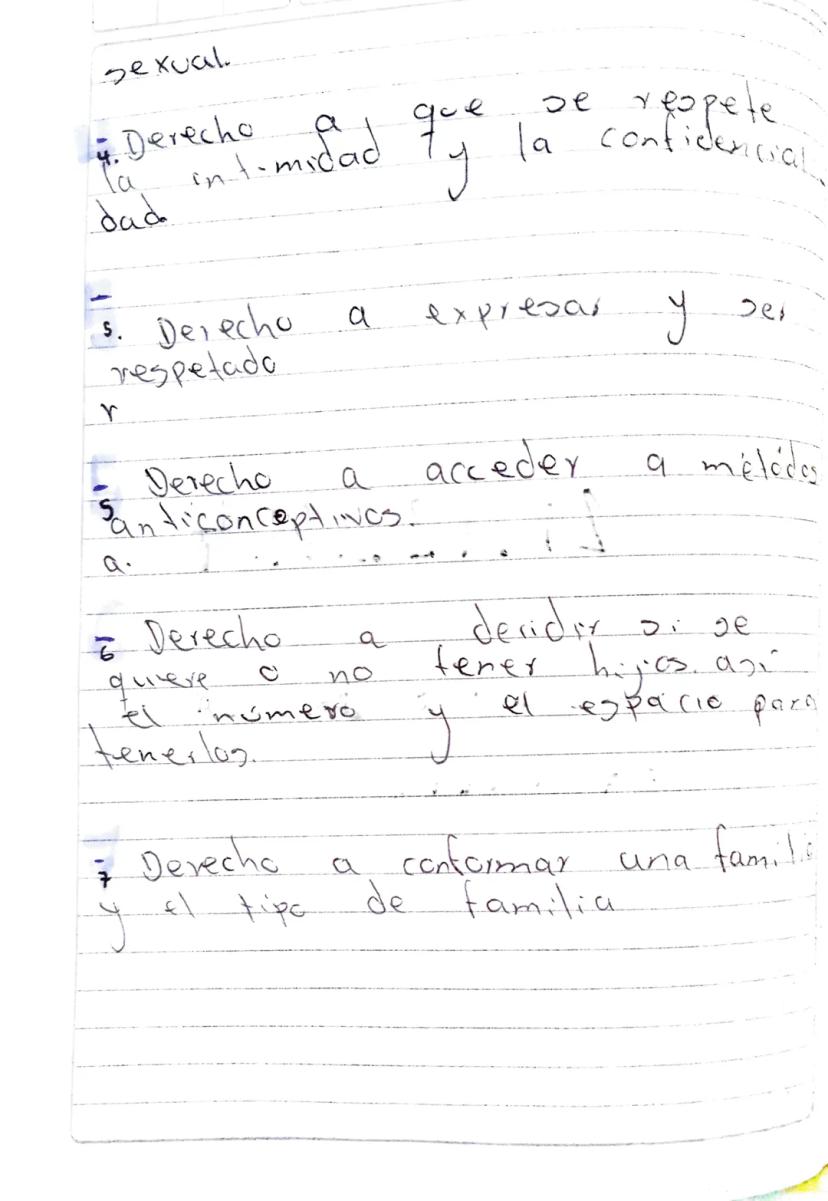 sexual.
4. Derecho a que se respete
la intimidad y la confidencial
dad.
5. Derecho a expresar y ser
respetado
r
5 Derecho a acceder a métodos
anticonceptivos.
a.
6 Derecho a decidir si se
quiere o no tener hijos. así
el número y el espacio para
tenerlos.
7 Derecho a conformar una famili
y el tipo de familia